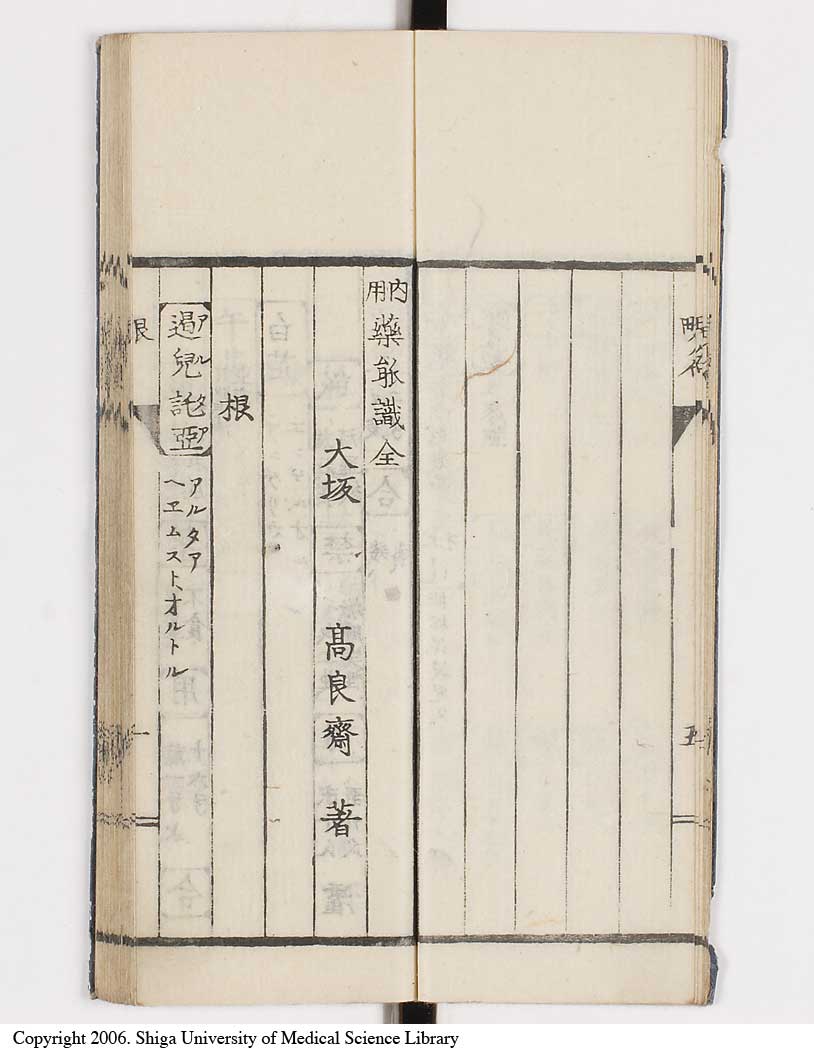 内用藥能識全
大坂 高良齋 著
根
遏兒託亞 アルタア
アルタア
ヘヱムスト、オルトル
根
一
五
Copyright 2006. Shiga University of Medical Science Library